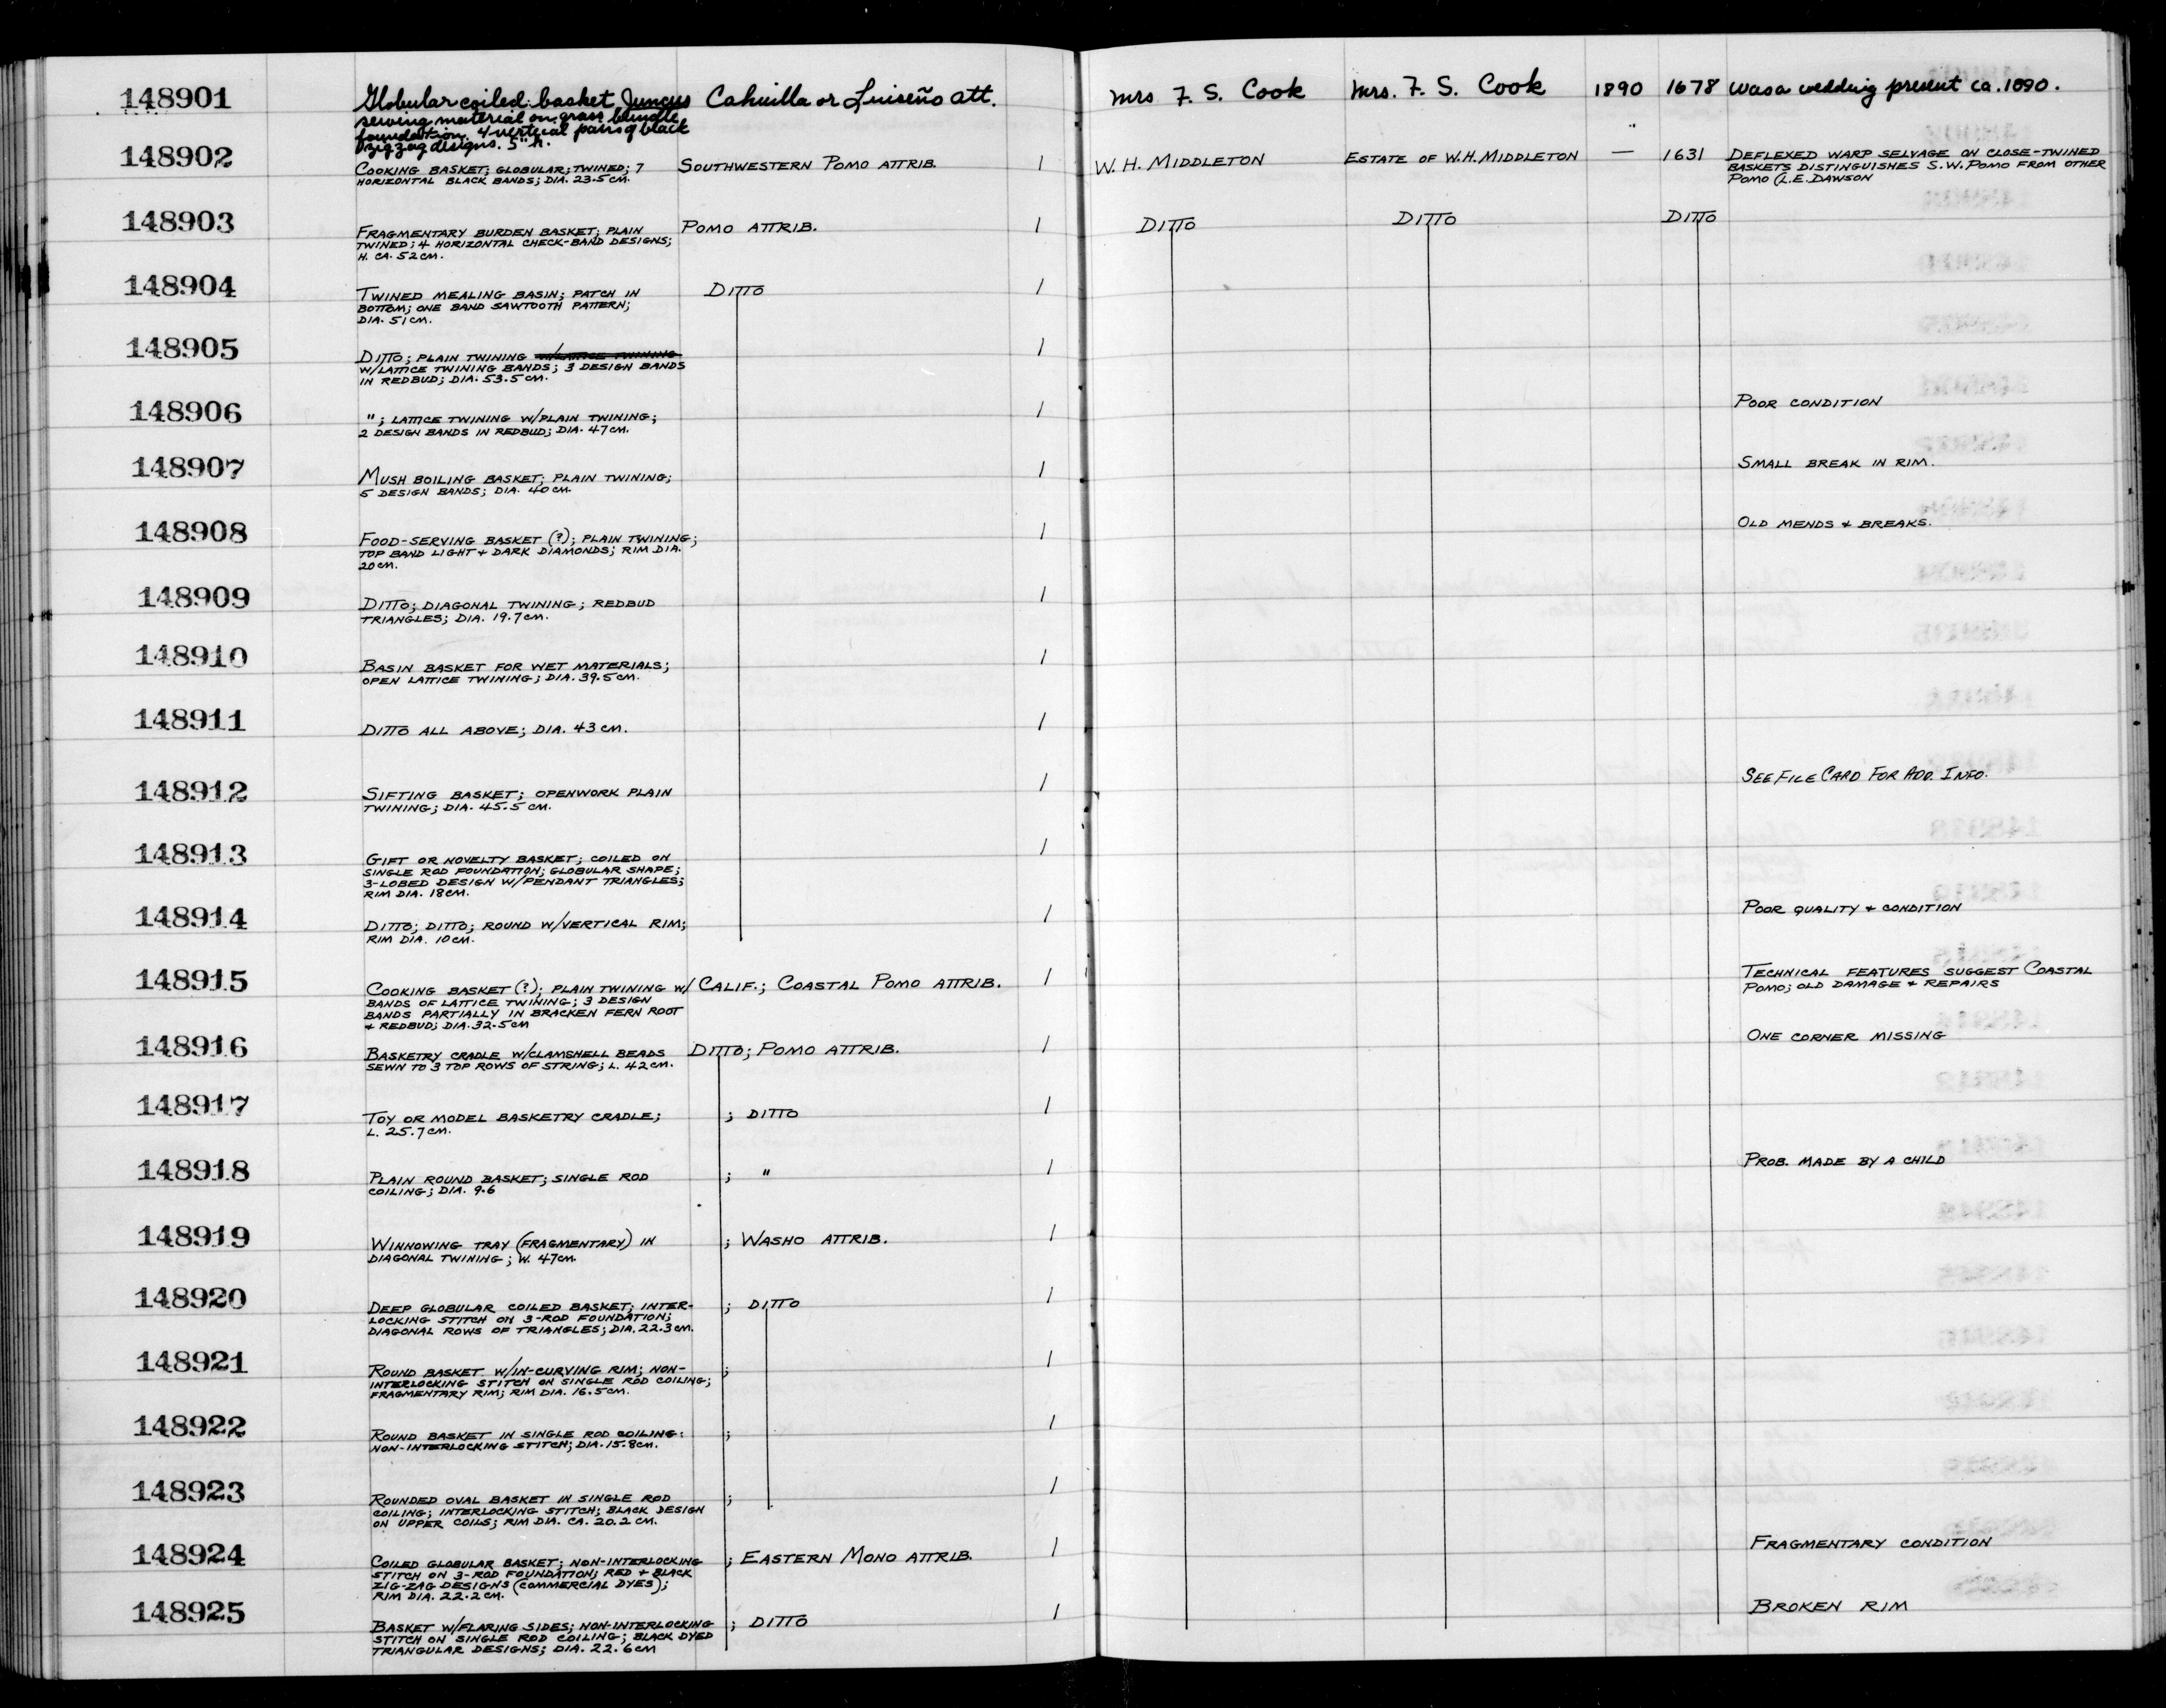 148901 Globular coiled basket, Juncus Cahuilla or Luiseño att. Mrs F. S. Cook Mrs. F. S. Cook 1890 1678 was a wedding present ca. 1890.
sewing material on grass bundle
foundation. 4 vertical pairs of black
zigzag designs. 5" h.
148902 COOKING BASKET; GLOBULAR; TWINED; 7 SOUTHWESTERN POMO ATTRIB. 1 W. H. MIDDLETON ESTATE OF W.H. MIDDLETON — 1631 DEFLEXED WARP SELVAGE ON CLOSE-TWINED
HORIZONTAL BLACK BANDS; DIA. 23.5 CM. BASKETS DISTINGUISHES S.W. POMO FROM OTHER
POMO (L.E. DAWSON
148903 FRAGMENTARY BURDEN BASKET; PLAIN POMO ATTRIB. 1 DITTO DITTO DITTO
TWINED; 4 HORIZONTAL CHECK-BAND DESIGNS;
H. CA. 52 CM.
148904 TWINED MEALING BASIN; PATCH IN DITTO 1
BOTTOM; ONE BAND SAWTOOTH PATTERN;
DIA. 51 CM.
148905 DITTO; PLAIN TWINING W/LATTICE TWINING 1
W/LATTICE TWINING BANDS; 3 DESIGN BANDS
IN REDBUD; DIA. 53.5 CM.
148906 "; LATTICE TWINING W/PLAIN TWINING; 1 POOR CONDITION
2 DESIGN BANDS IN REDBUD; DIA. 47 CM.
148907 MUSH BOILING BASKET; PLAIN TWINING; 1 SMALL BREAK IN RIM.
5 DESIGN BANDS; DIA. 40 CM.
148908 FOOD-SERVING BASKET (?); PLAIN TWINING; 1 OLD MENDS + BREAKS.
TOP BAND LIGHT + DARK DIAMONDS; RIM DIA.
20 CM.
148909 DITTO; DIAGONAL TWINING; REDBUD 1
TRIANGLES; DIA. 19.7 CM.
148910 BASIN BASKET FOR WET MATERIALS; 1
OPEN LATTICE TWINING; DIA. 39.5 CM.
148911 DITTO ALL ABOVE; DIA. 43 CM. 1
148912 SIFTING BASKET; OPENWORK PLAIN 1 SEE FILE CARD FOR ADD. INFO.
TWINING; DIA. 45.5 CM.
148913 GIFT OR NOVELTY BASKET; COILED ON 1
SINGLE ROD FOUNDATION; GLOBULAR SHAPE;
3-LOBED DESIGN W/PENDANT TRIANGLES;
RIM DIA. 18 CM.
148914 DITTO; DITTO; ROUND W/VERTICAL RIM; 1 POOR QUALITY + CONDITION
RIM DIA. 10 CM.
148915 COOKING BASKET (?); PLAIN TWINING W/ CALIF.; COASTAL POMO ATTRIB. 1 TECHNICAL FEATURES SUGGEST COASTAL
BANDS OF LATTICE TWINING; 3 DESIGN POMO; OLD DAMAGE + REPAIRS
BANDS PARTIALLY IN BRACKEN FERN ROOT
+ REDBUD; DIA. 32.5 CM
148916 BASKETRY CRADLE W/CLAMSHELL BEADS DITTO; POMO ATTRIB. 1 ONE CORNER MISSING
SEWN TO 3 TOP ROWS OF STRING; L. 42 CM.
148917 TOY OR MODEL BASKETRY CRADLE; ; DITTO 1
L. 25.7 CM.
148918 PLAIN ROUND BASKET; SINGLE ROD ; " 1 PROB. MADE BY A CHILD
COILING; DIA. 9.6
148919 WINNOWING TRAY (FRAGMENTARY) IN ; WASHO ATTRIB. 1
DIAGONAL TWINING; W. 47 CM.
148920 DEEP GLOBULAR COILED BASKET; INTER- ; DITTO 1
LOCKING STITCH ON 3-ROD FOUNDATION;
DIAGONAL ROWS OF TRIANGLES; DIA. 22.3 CM.
148921 ROUND BASKET W/IN-CURVING RIM; NON- ; 1
INTERLOCKING STITCH ON SINGLE ROD COILING;
FRAGMENTARY RIM; RIM DIA. 16.5 CM.
148922 ROUND BASKET IN SINGLE ROD COILING: ; 1
NON-INTERLOCKING STITCH; DIA. 15.8 CM.
148923 ROUNDED OVAL BASKET IN SINGLE ROD ; 1
COILING; INTERLOCKING STITCH; BLACK DESIGN
ON UPPER COILS; RIM DIA. CA. 20.2 CM.
148924 COILED GLOBULAR BASKET; NON-INTERLOCKING ; EASTERN MONO ATTRIB. 1 FRAGMENTARY CONDITION
STITCH ON 3-ROD FOUNDATION; RED + BLACK
ZIG-ZAG DESIGNS (COMMERCIAL DYES);
RIM DIA. 22.2 CM.
148925 BASKET W/FLARING SIDES; NON-INTERLOCKING ; DITTO 1 BROKEN RIM
STITCH ON SINGLE ROD COILING; BLACK DYED
TRIANGULAR DESIGNS; DIA. 22.6 CM